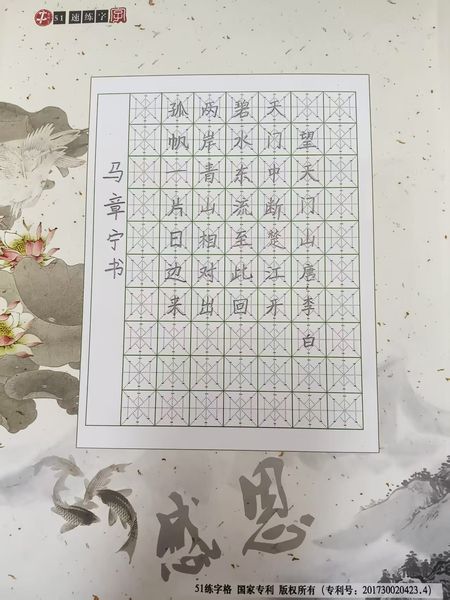 51速练字
望天门山唐李白
天门中断楚江开
碧水东流至此回
两岸青山相对出
孤帆一片日边来
马章宁书
感恩
51练字格 国家专利 版权所有（专利号：201730020423.4）